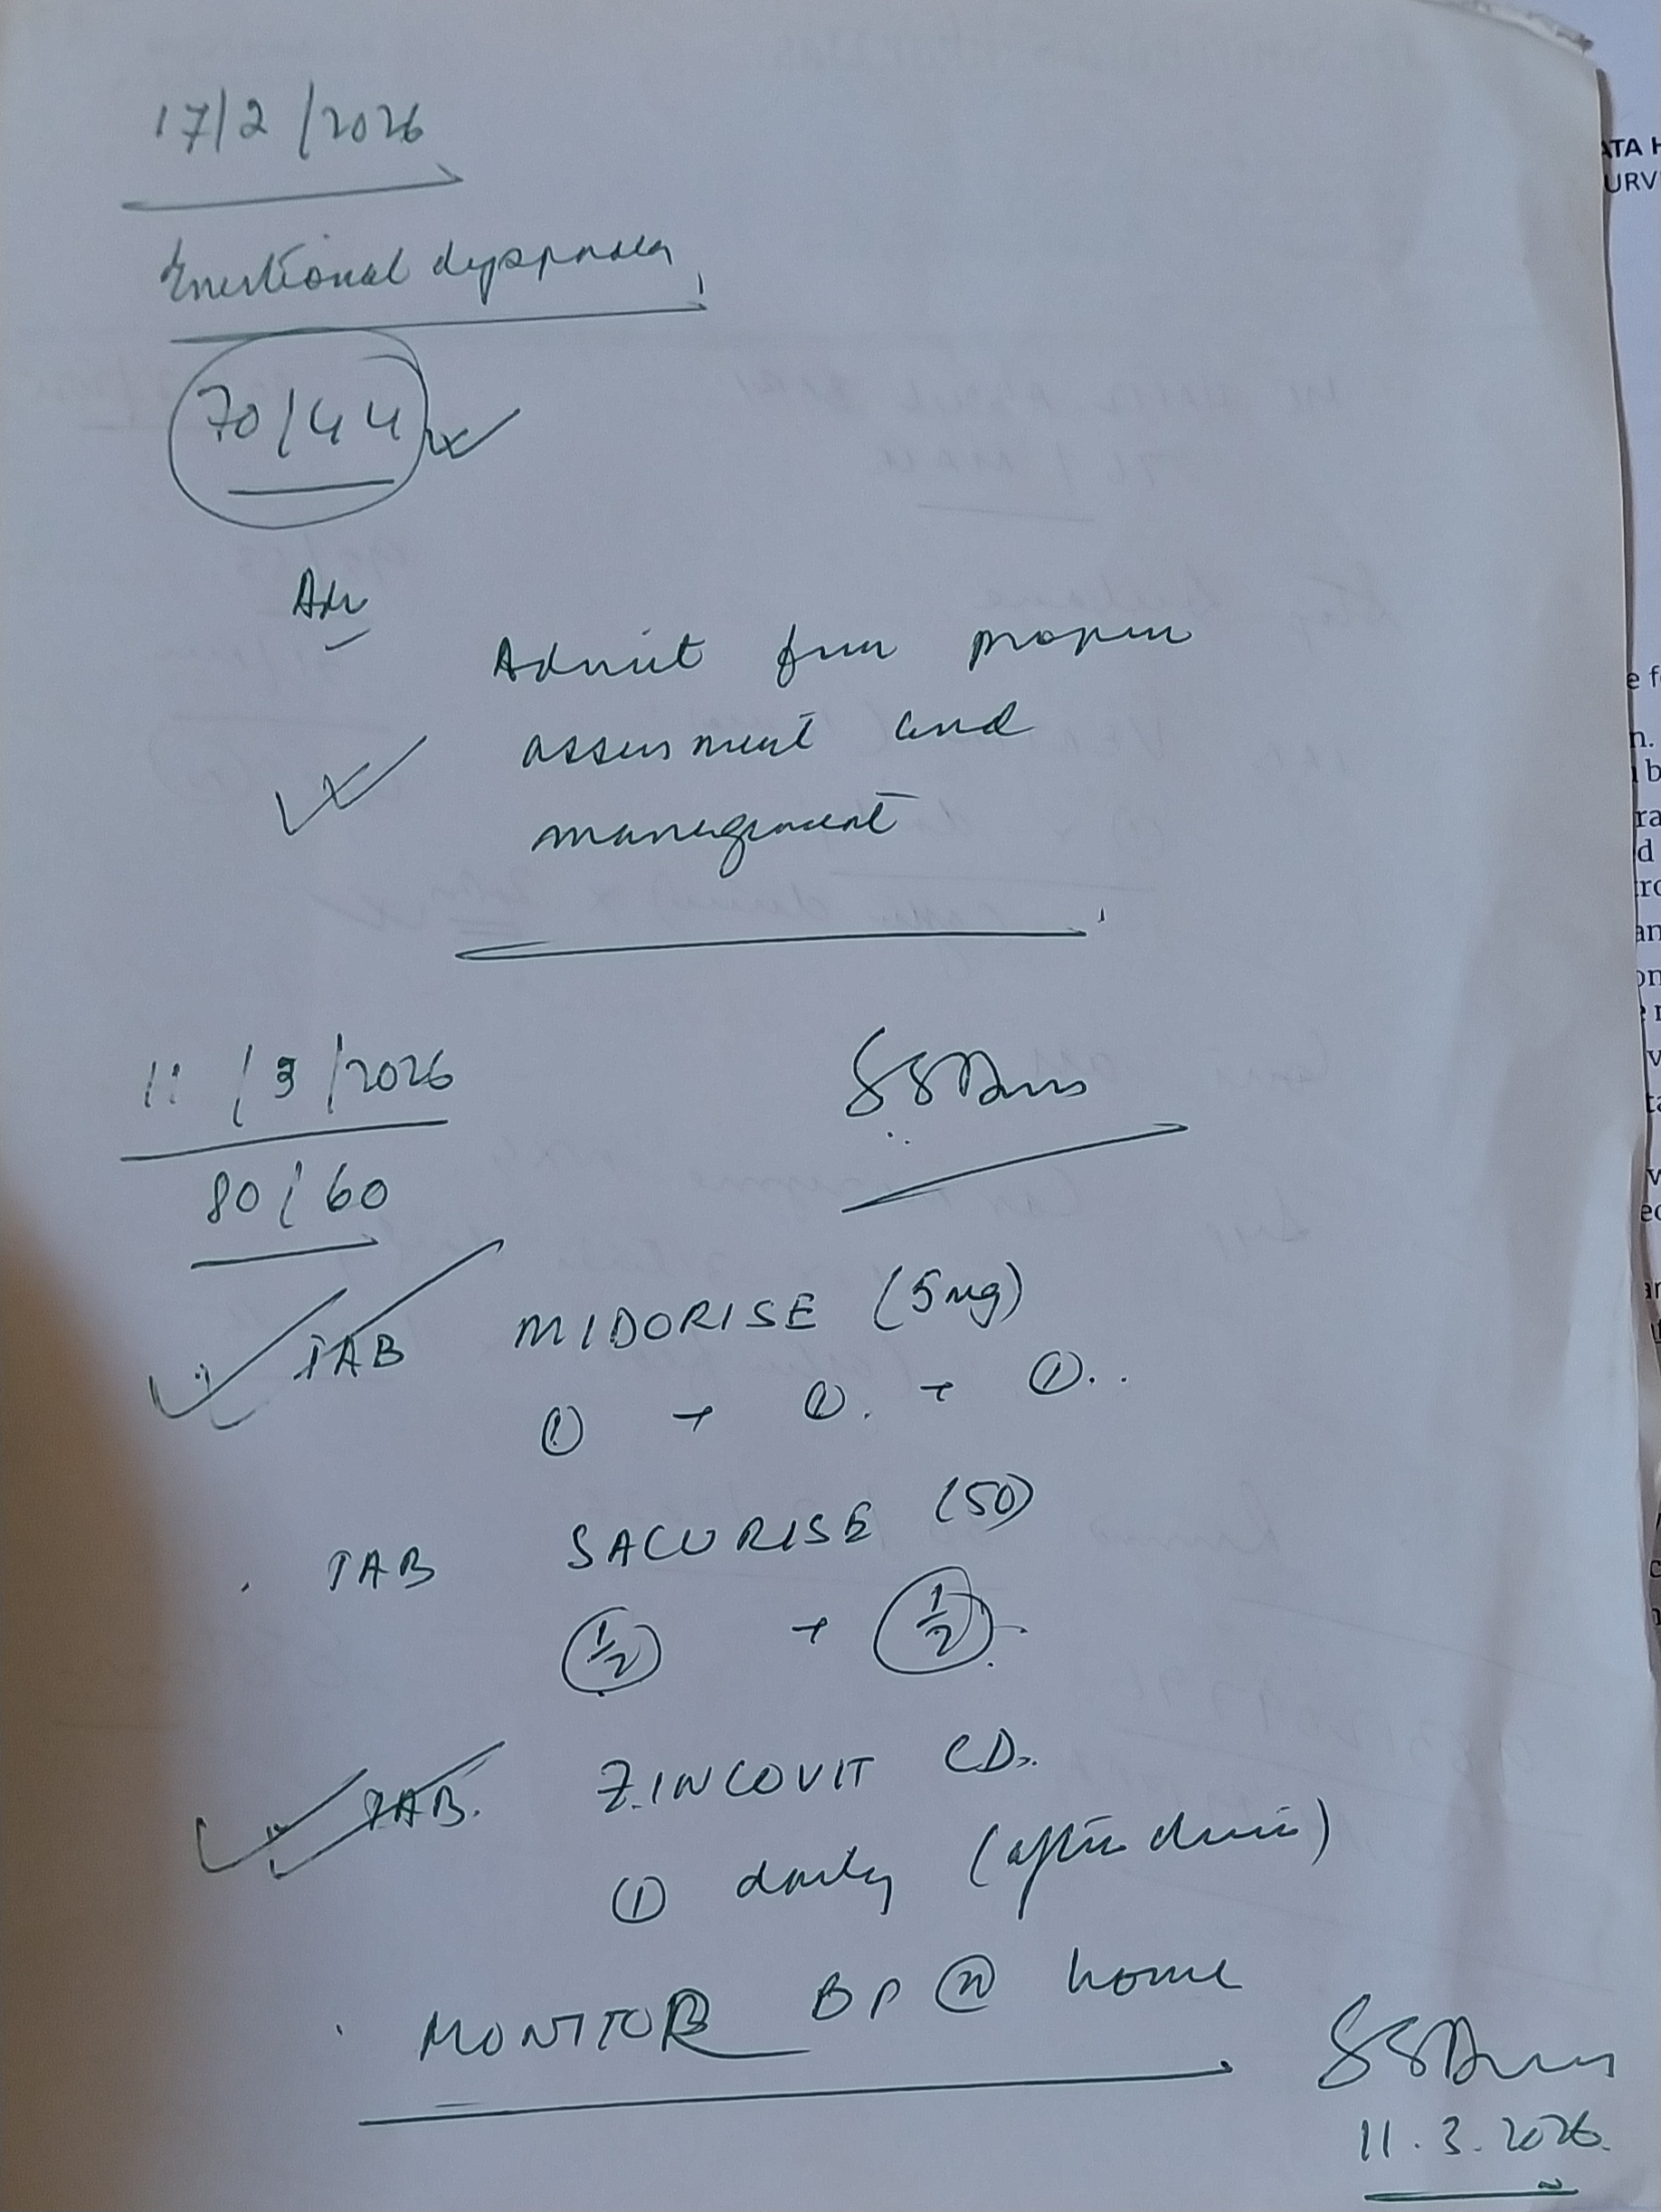 17/2/2026
Functional dyspnoea
70/44
Adv
Admit for proper
assessment and
management
11/3/2026
80/60
TAB MIDORISE (5mg)
① + ① + ①
TAB SACURISE (50)
1/2 + 1/2
TAB. ZINCOVIT CD
① daily (after dinner)
MONITOR BP @ home
11.3.2026
ATA H
URV